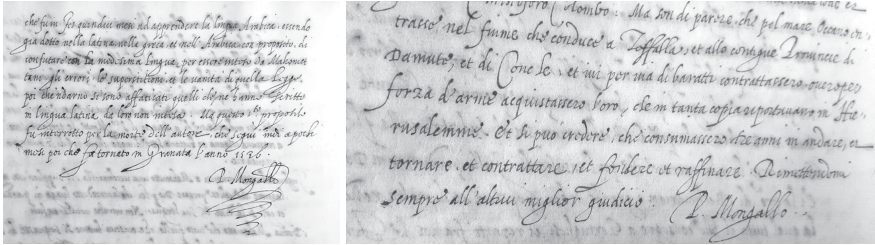 che fu in fes quindici mesi ad apprendere la lingua Arabica. essendo
già dotto nella latina, nella greca et nell'Arabica, con proposito, di
confutare con la medesima lingua, per essere
tani gli errori, le superstitioni et la vanità di quella Legge.
poi che indarno si sono affaticati quelli che ne hanno scritto
in lingua latina da loro non intesa. Ma questo proposito
fu interrotto per la morte dell'autore, che seguì
mesi poi che fu tornato in Granata l'anno 1536.
P. Mongallo
Colombo. Ma son di parere, che pel mare Oceano en-
trasse nel fiume che conduce a Zoffalla, et allo contigue Prouincie di
Damute, et di Conche, et iui per uia di baratti contrattassero, ouero per
forza d'arme acquistassero l'oro, che in tanta copia riportauano in Hie-
rusalemme. Et si può credere, che consumassero tre anni in andare, et
tornare. et contrattare, et fondere et raffinare. Remettendomi
sempre all'altrui miglior giudicio.
P. Mongallo.